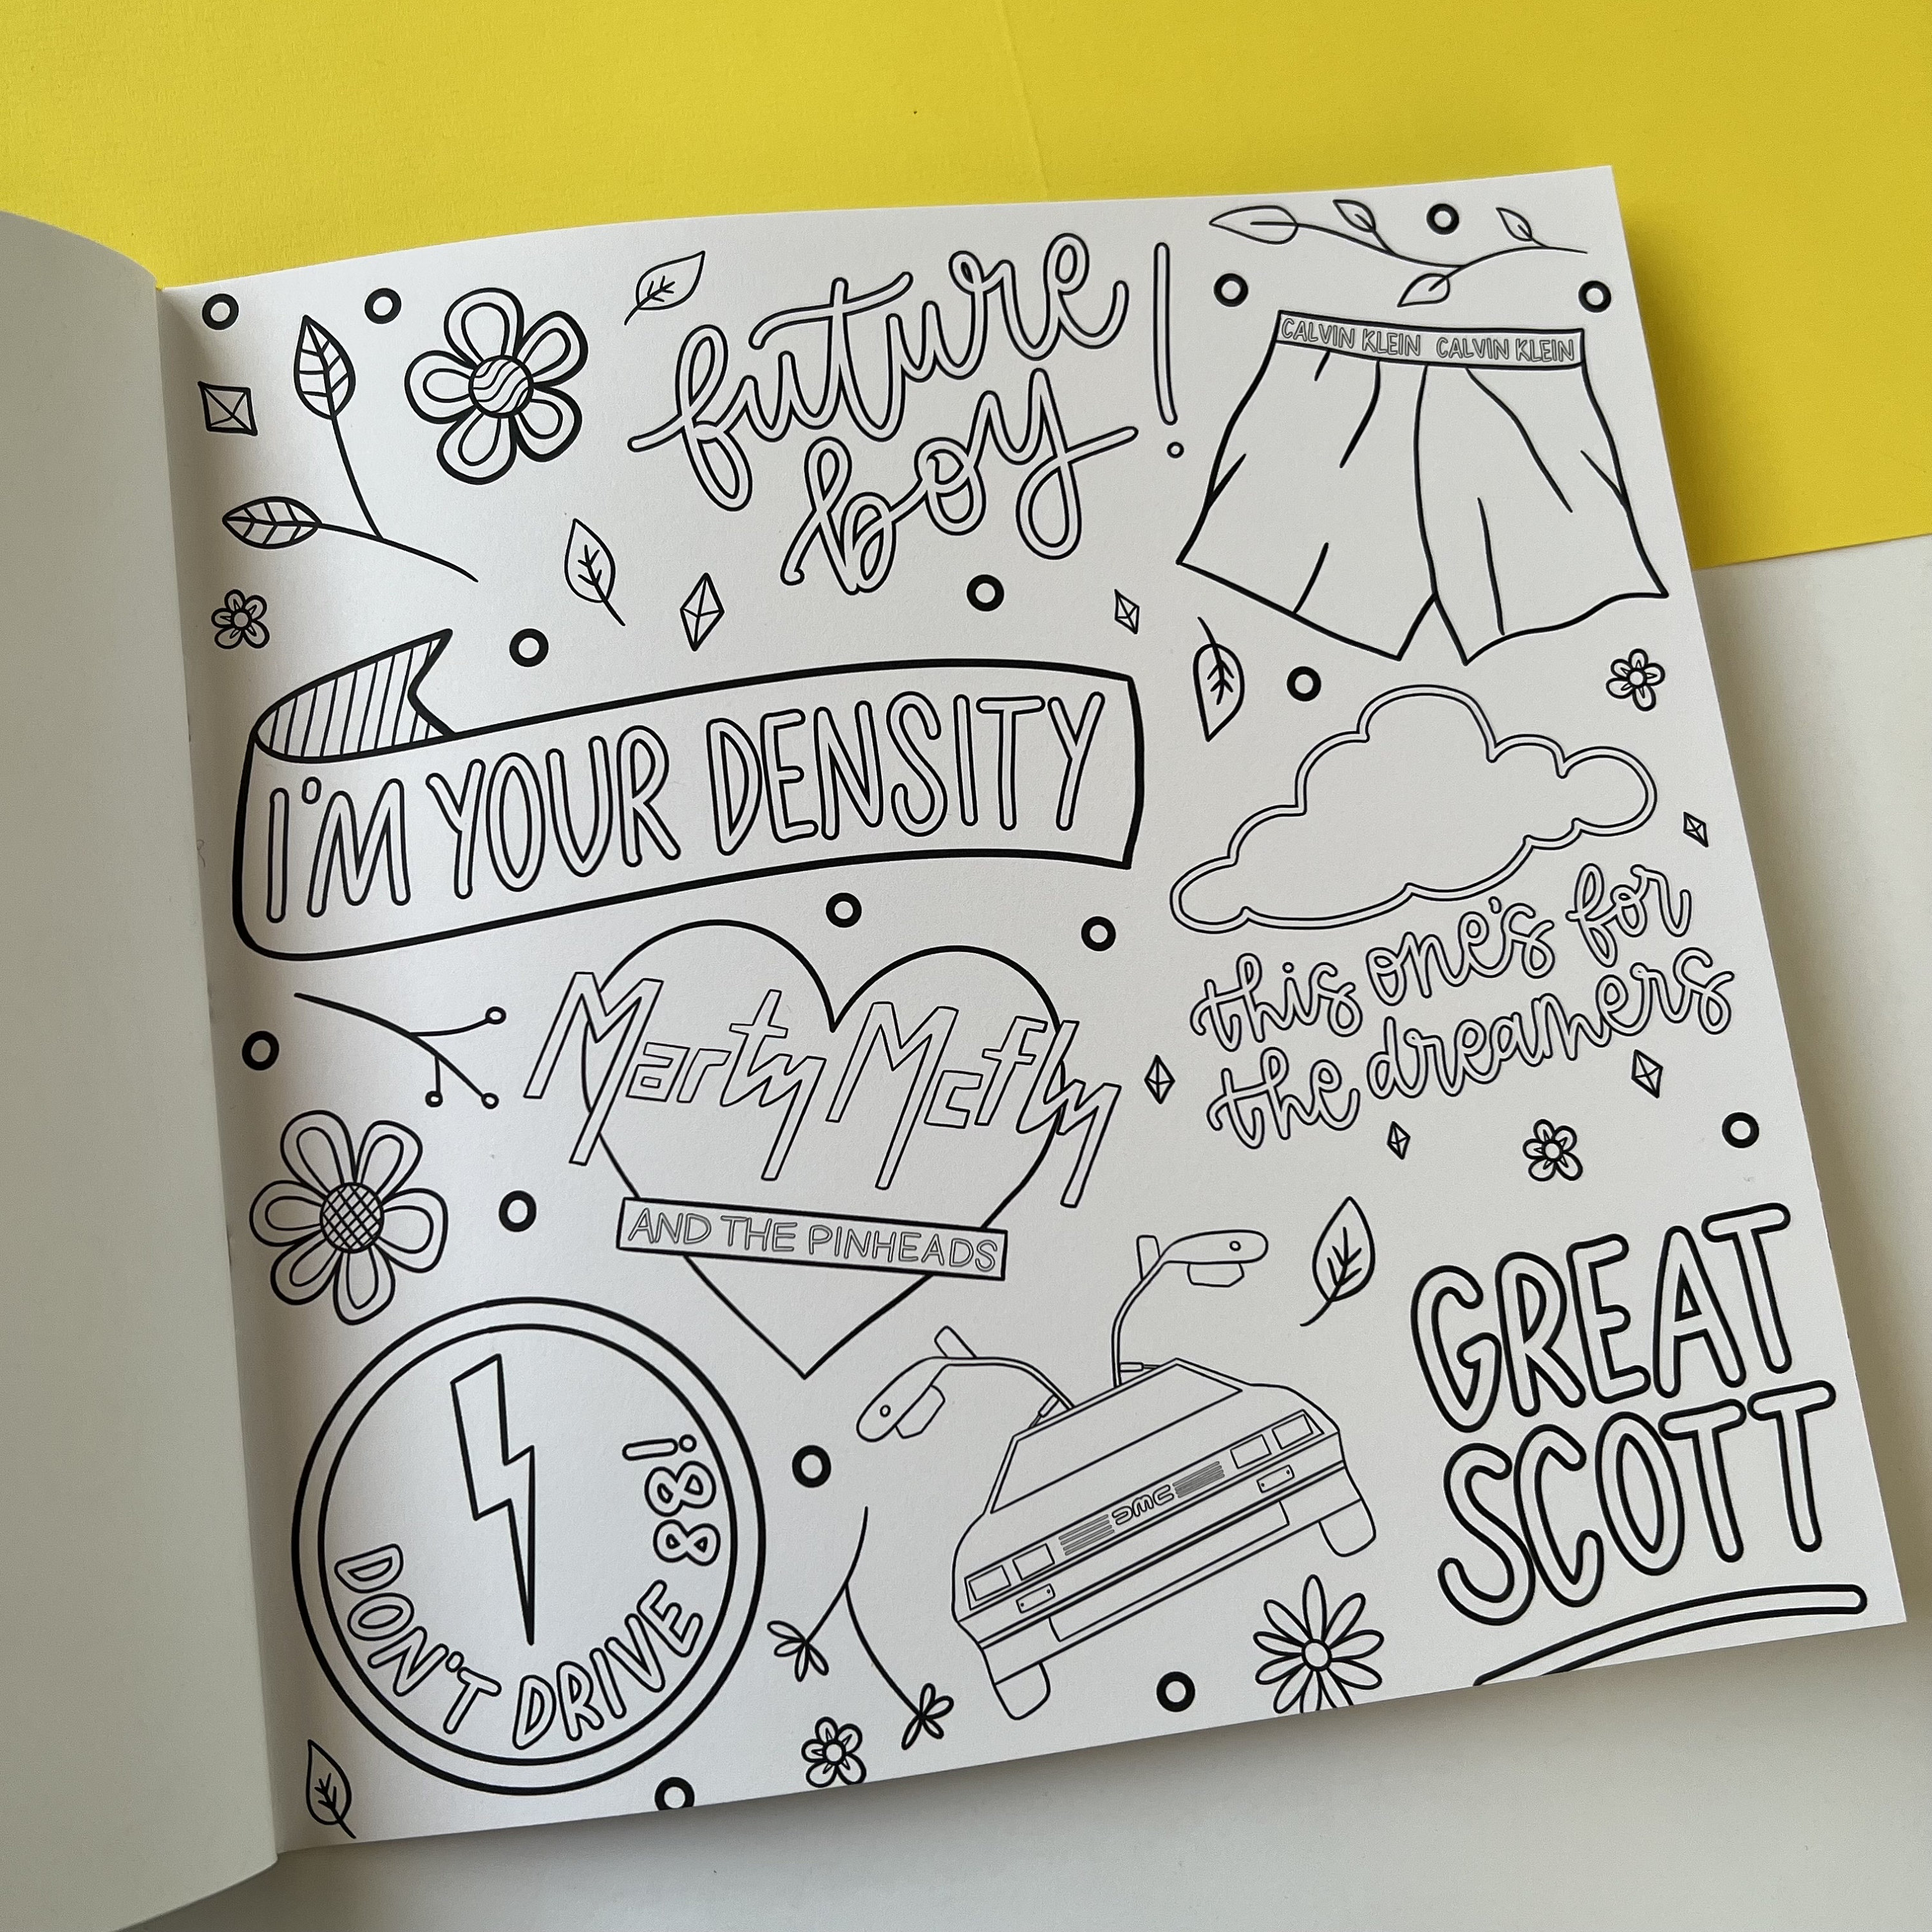 future
boy!
CALVIN KLEIN CALVIN KLEIN
I'M YOUR DENSITY
this one's for
the dreamers
Marty Mcfly
AND THE PINHEADS
DON'T DRIVE 88!
DMC
GREAT
SCOTT